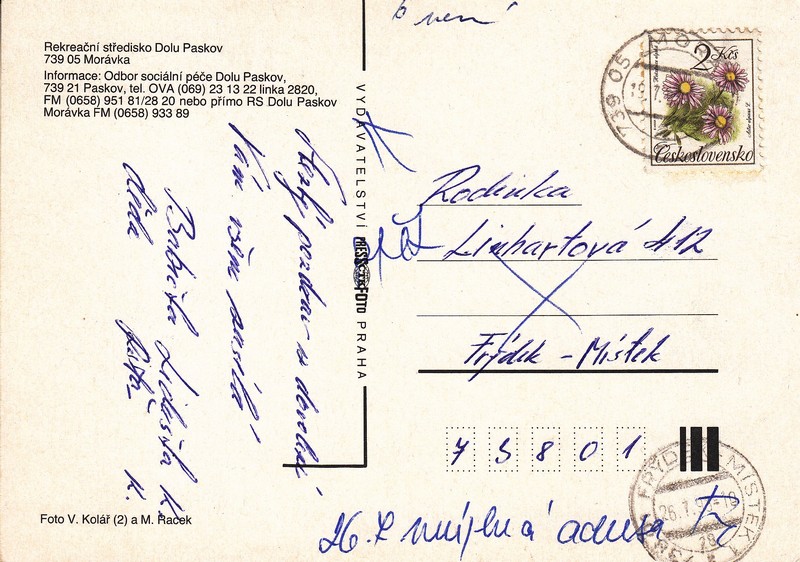 Rekreační středisko Dolu Paskov
739 05 Morávka
Informace: Odbor sociální péče Dolu Paskov,
739 21 Paskov, tel. OVA (069) 23 13 22 linka 2820,
FM (0658) 951 81/28 20 nebo přímo RS Dolu Paskov
Morávka FM (0658) 933 89
pozdrav z dovolené
Vám všem
Babička
děda
Foto V. Kolář (2) a M. Raček
VYDAVATELSTVÍ PRESSFOTO PRAHA
není
739 05
2 Kčs
Československo
Rodinka
Linhartová 412
zpět
Frýdek - Místek
73801
FRÝDEK-MÍSTEK 1
26.7. neúplná adresa